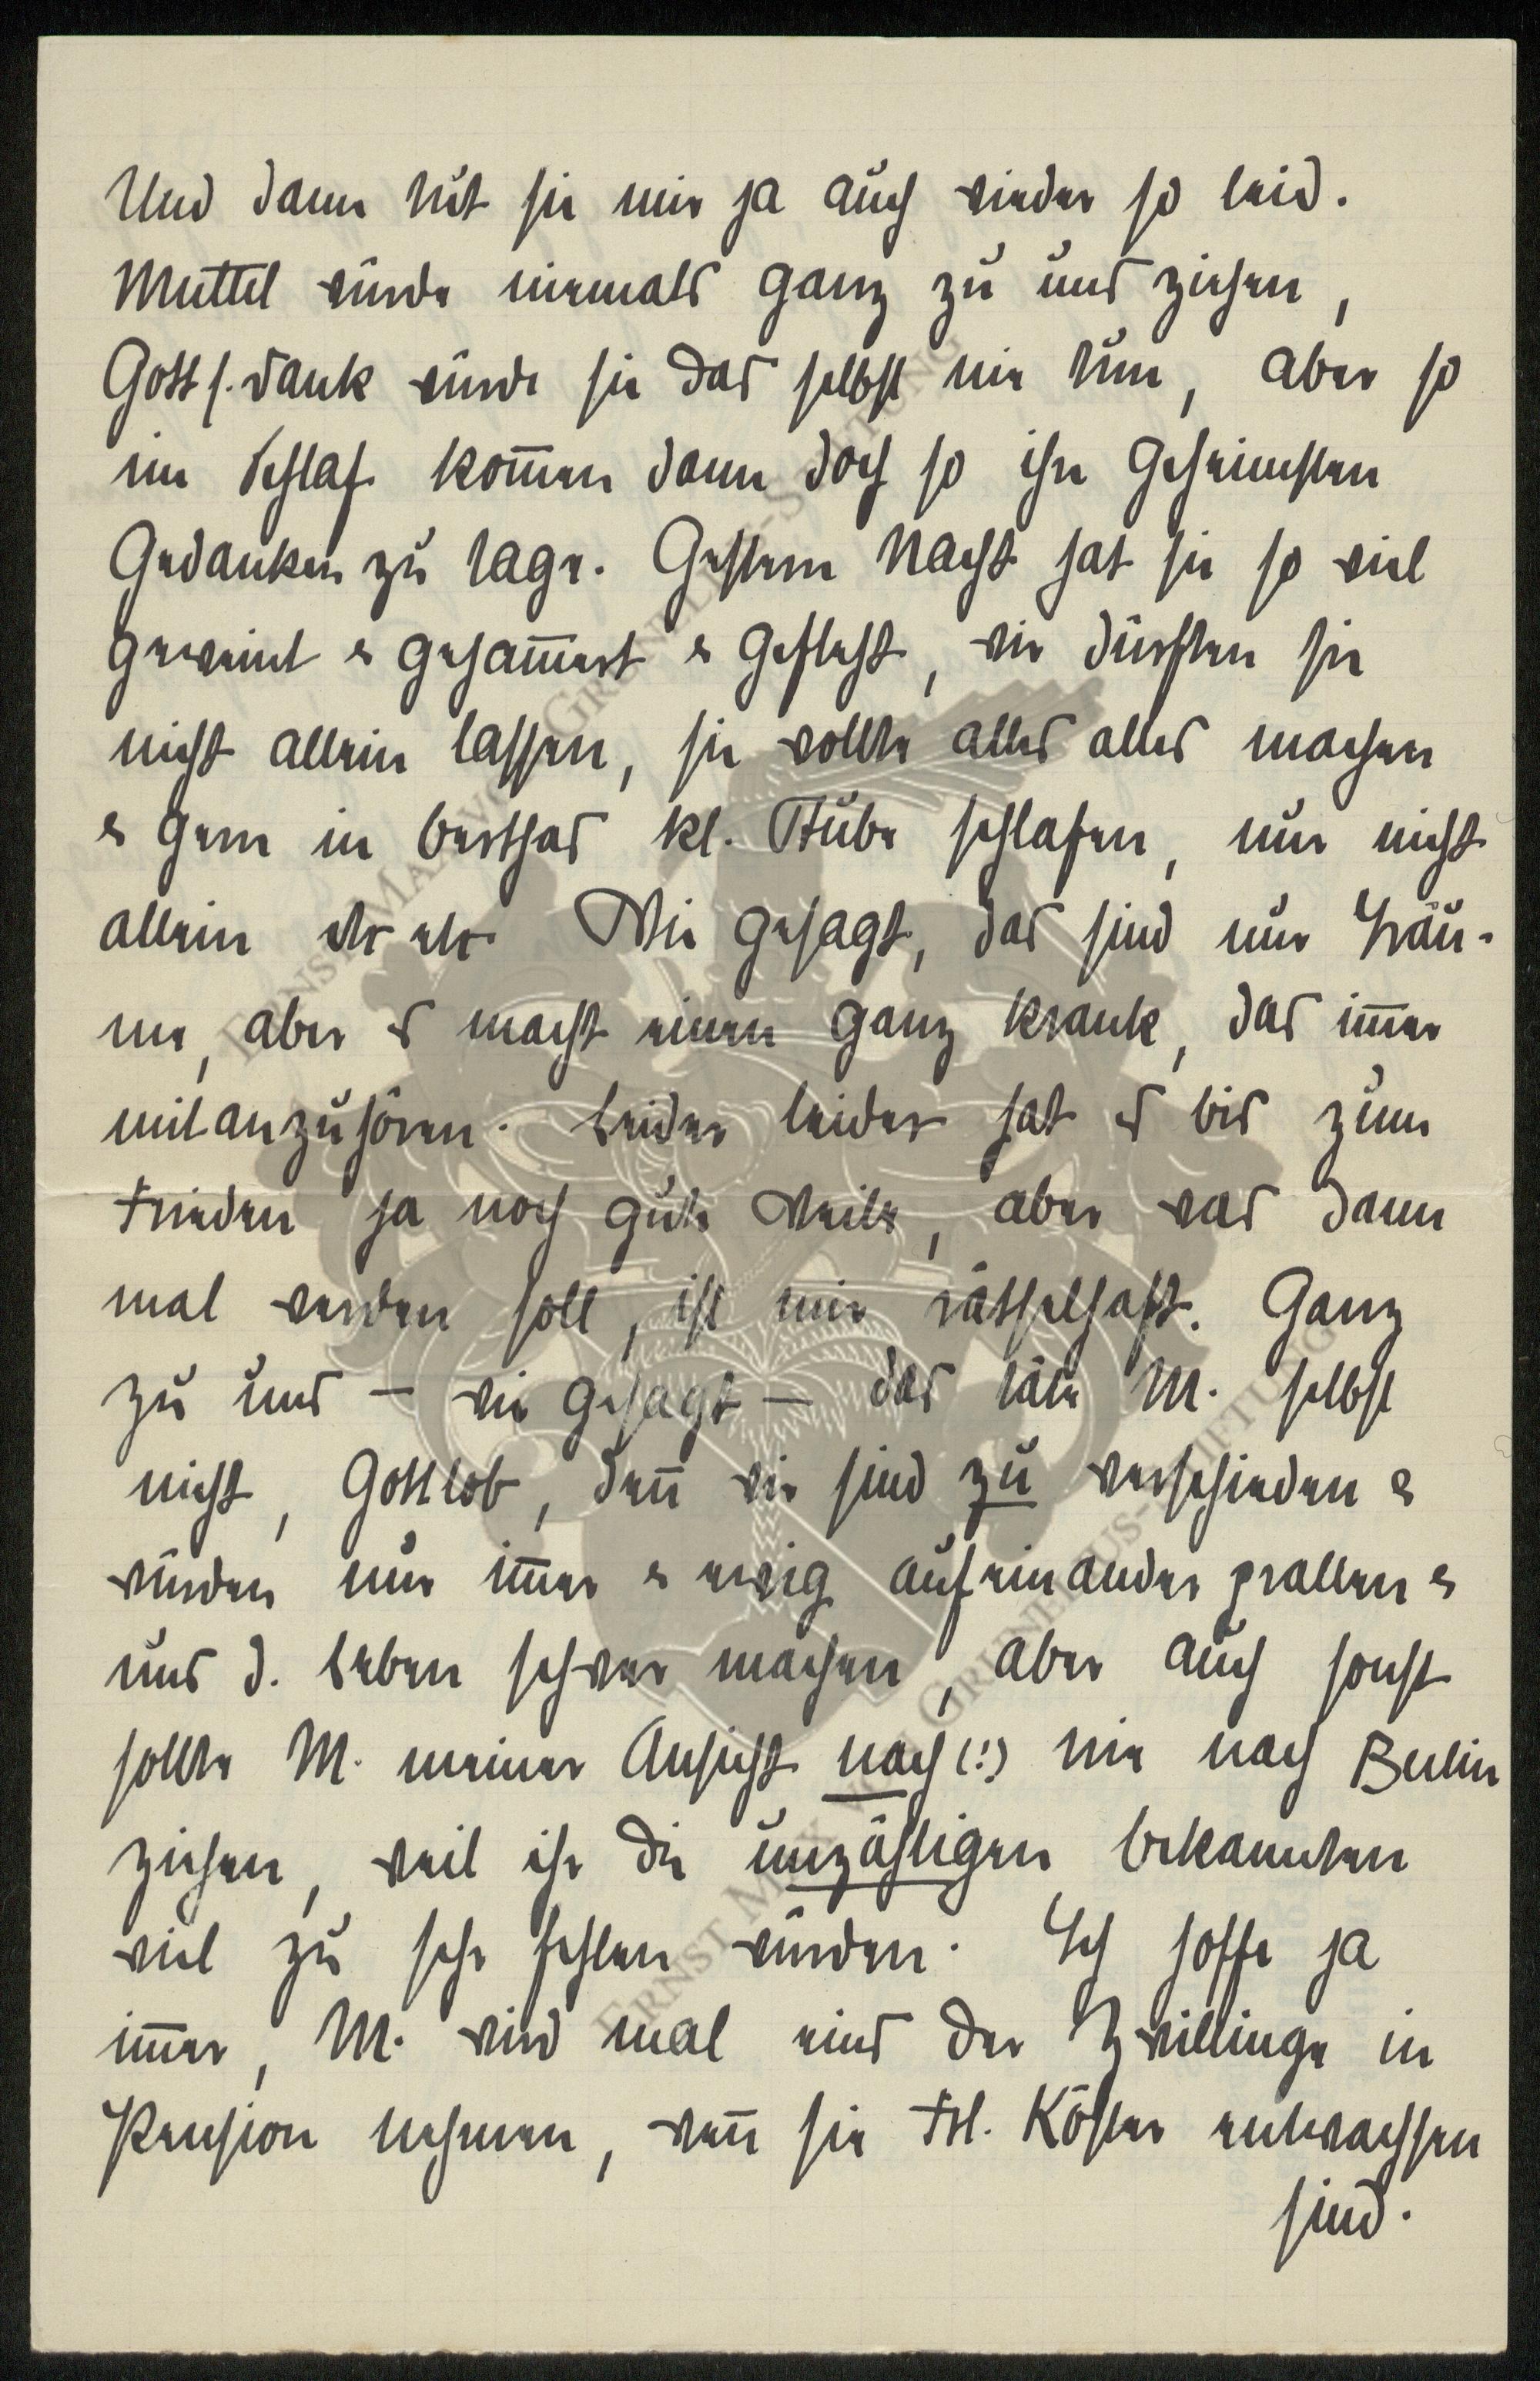 Und dann tut sie mir ja auch wieder so leid.
Muttel würde niemals ganz zu uns ziehen,
Gott s. dank würde sie das selbst nie tun, aber so
im Schlaf kom̅en dann doch so ihre geheimsten
Gedanken zu tage. Gestern Nacht hat sie so viel
geweint & gejam̅ert & gefleht, wir dürften sie
nicht allein lassen, sie wollte alles alles machen
& gern in Berthas kl. Stube schlafen, nur nicht
allein etc etc. Wie gesagt, das sind nur Träu-
me, aber es macht einen ganz krank, das im̅er
mitanzuhören. Leider leider hat es bis zum
Frieden ja noch gute Weile, aber was dann
mal werden soll, ist mir rätselhaft. Ganz
zu uns – wie gesagt – das täte M. selbst
nicht, Gottlob, den̅ wir sind zu verschieden &
würden nur im̅er & ewig aufeinander prallen &
uns d. Leben schwer machen, aber auch sonst
sollte M. meiner Ansicht nach (!) nie nach Berlin
ziehen, weil ihr die unzähligen Bekannten
viel zu sehr fehlen würden. Ich hoffe ja
im̅er, M. wird mal eins der Zwillinge in
Pension nehmen, wen̅ sie Frl. Köster entwachsen
sind.
ERNST MAX VON GRUNELIUS-STIFTUNG
ERNST MAX VON GRUNELIUS-STIFTUNG